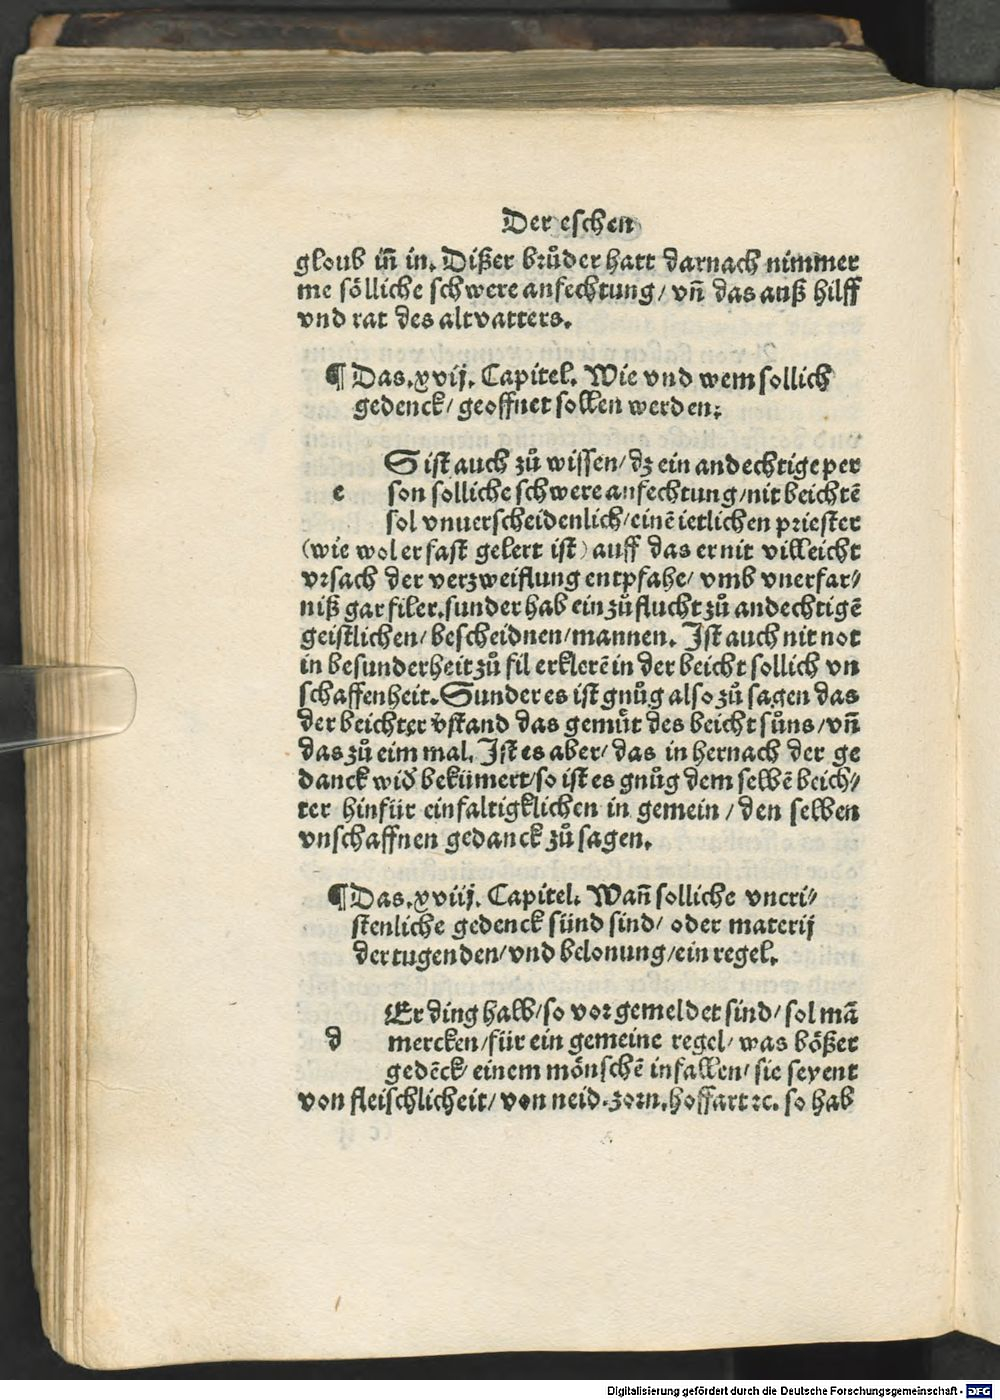 Der eschen
gloub iñ in. Dißer brůder hatt darnach nimmer
me sölliche schwere anfechtung/ vñ das auß hilff
vnd rat des altvatters.
¶ Das.xvij. Capitel. Wie vnd wem sollich
gedenck/ geoffnet sollen werden;
S ist auch zů wissen/ dz ein andechtige per
e son solliche schwere anfechtung/nit beichtē
sol vnuerscheidenlich/einē ietlichen priester
(wie wol er fast gelert ist) auff das er nit villeicht
vrsach der verzweiflung entpfahe/ vmb vnerfar⸗
niß gar filer.sunder hab ein zůflucht zů andechtigē
geistlichen/ bescheidnen/mannen. Ist auch nit not
in besunderheit zů fil erklerē in der beicht sollich vn
schaffenheit. Sunder es ist gnůg also zů sagen das
der beichter v̄stand das gemuͤt des beicht sůns/vñ
das zů eim mal. Ist es aber/ das in hernach der ge
danck wid̄ bekümert/so ist es gnůg dem selbē beich⸗
ter hinfür einfaltigklichen in gemein / den selben
vnschaffnen gedanck zů sagen.
¶ Das.xviij. Capitel. Wañ solliche vncri⸗
stenliche gedenck sünd sind/ oder materij
der tugenden/vnd belonung/ein regel.
Er ding halb/so vor gemeldet sind/ sol mā
d mercken/für ein gemeine regel/ was bößer
gedēck/ einem mönschē infallen/ sie seyent
von fleischlicheit/ von neid.zorn.hoffart ꝛc. so hab
Digitalisierung gefördert durch die Deutsche Forschungsgemeinschaft - DFG